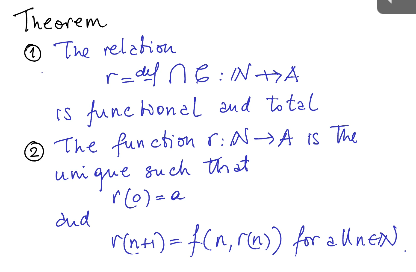 Theorem
① The relation
r =def ∩ C : ℕ ⇸ A
is functional and total
② The function r : ℕ → A is the
unique such that
r(0) = a
and
r(n+1) = f(n, r(n)) for all n∈ℕ.